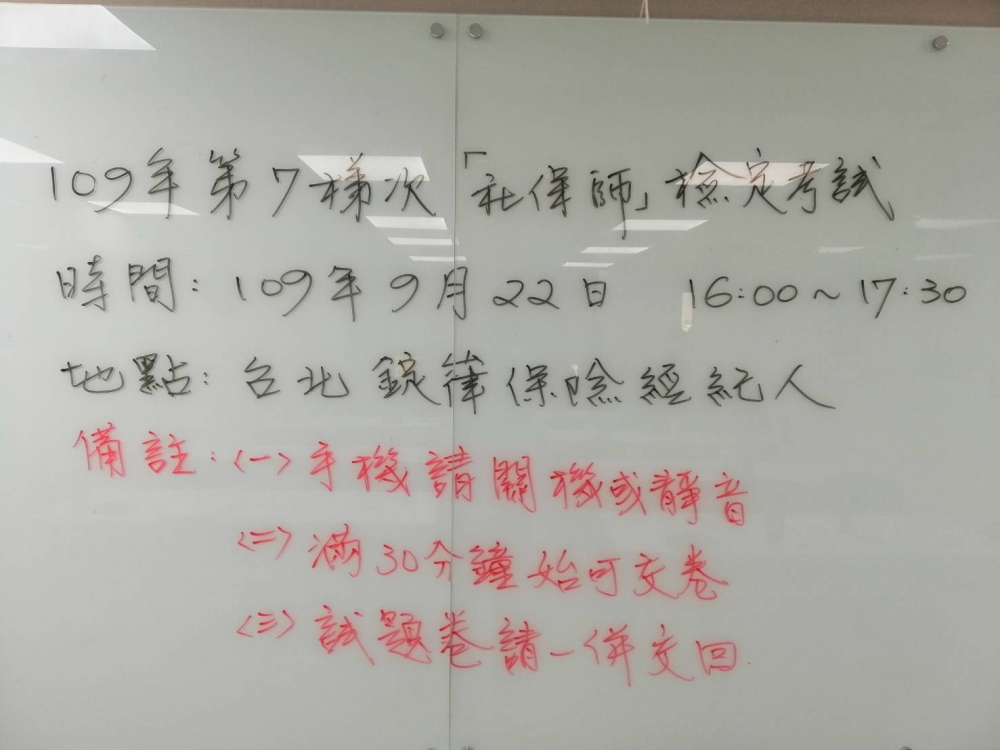 109年第7梯次「社保師」檢定考試
時間：109年9月22日 16:00~17:30
地點：台北錠嵂保險經紀人
備註：〈一〉手機請關機或靜音
〈二〉滿30分鐘始可交卷
〈三〉試題卷請一併交回.